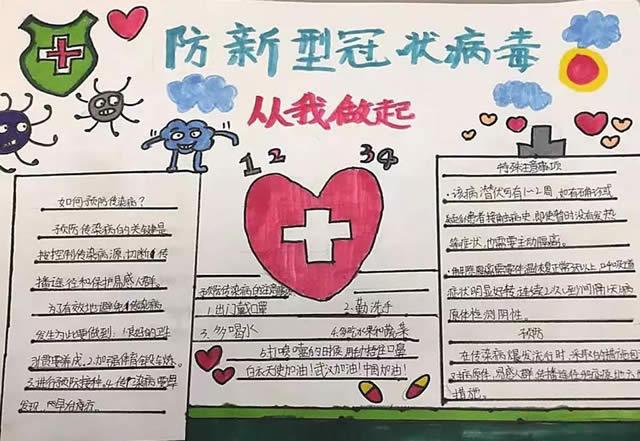 防新型冠状病毒
从我做起
1 2 3 4
如何预防传染病?
预防传染病的关键是
按控制传染病源,切断传
播途径和保护易感人群。
为了有效地避免传染病
发生为此要做到:1.良好的卫
习惯养成,2.加强体育锻炼。
3.进行预防接种,4.传染病要早
发现
预防传染病的注意
1.出门戴口罩
2.勤洗手
3.多喝水
4.多吃水果和蔬菜
5.打喷嚏的时候,用
白衣天使加油!武汉加油!中国加油!
特殊注意事项
·该病潜伏可有1~2周,如有确诊或
患者接触病史,即使暂时没有发热
等症状,也需要主动隔离。
·解除隔离需要体温恢复正常3天以上,
症状明显好转,连续2次(间隔1天)病
原体检测阴性。
预防
在传染病爆发流行时,采取的措施包
病原体、易感人群
措施。